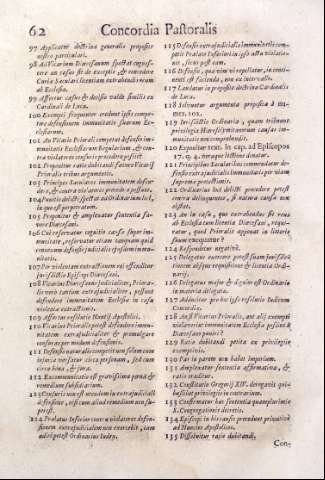 62 Concordia Pastoralis
97 Applicatur doctrina generalis proposito
nostro particulari.
98 Ad Vicarium Diœcesanum spectat cognos-
cere an casus sit de exceptis, & concedere
Curiæ Seculari licentiam extrahendi reum
ab Ecclesia.
99 Affertur casus & decisio valde similis ex
Cardinali de Luca.
100 Exempti frequenter eodunt ipsis compe-
tere defensionem immunitatis suarum Ec-
clesiarum.
101 An Vicario Priorali competat defensio im-
munitatis Ecclesiarum Regularium, & con-
tra violatores censuris procedere possit
102 Proponitur ratio dubitandi favore Vicarij
Prioralis tribus argumentis.
103 Principes Seculares immunitatem defen-
dere, & contra violatores procedere possunt.
104 Punitio delicti spectat ad Ordinarium loci,
in quo est perpetratum.
105 Proponitur & amplectitur sententia fa-
vore Diœcesani.
106 Cui reservatur cognitio causæ super im-
munitate, reservatur etiam tamquam quid
connexum defensio judicialis ejusdem immu-
nitatis.
107 Per violentam extractionem rei offenditur
jurisdictio Episcopi Diœcesani.
108 Vicarius Diœcesanus judicialiter, Priora-
lis vero tantum extrajudicialiter, possunt
defendere immunitatem Ecclesiæ in casu
violentæ extractionis.
109 Affertur resolutio Nuntij Apostolici.
110 Vicarius Prioralis potest defendere immu-
nitatem extrajudicialiter & promulgare
censuras per modum defensionis.
111 Defensio naturalis competit non solum cum
injuria versatur circa personam, sed cum
circa bona, & jura.
112 Excommunicatio est gravissima pœna &
remedium subsidiarium.
113 Censuris uti est modus extrajudicialis
defensionis, etsi cum aliud remedium non su-
ppetit.
114 Prælatus Inferior contra violatores defen-
sionem extrajudicialem non exercebit, cum
adiri potest Ordinarius Iudex.
115 Defensio extrajudicialis immunitatis com-
petit Prælato Inferiori in ipso actu violatio-
nis, secus post eam.
116 Defensio, qua vim vi repellitur, in conti-
nenti est facienda, non ex intervallo.
117 Laudatur in proposito doctrina Cardinalis
de Luca.
118 Solvuntur argumenta proposita à nu-
mer. 102.
119 Jurisdictio Ordinaria, quam tribuunt
privilegia Transfertinatorum causas im-
munitatis non comprehendit.
120 Expenditur text. in cap. ad Episcopos
17. q. 4. ejusque lectiones donatur.
121 Principibus Secularibus committitur de-
fensio extrajudicialis immunitatis per viam
supremæ protectionis.
122 Ordinarius loci delicti procedere potest
contra delinquentem, si natura causæ non
obstet.
123 An in casu, quo extrahendus sit reus
ab Ecclesia cum licentia Diœcesani, requi-
ratur, quod Prioralis apponat in litteris
suum exequatur?
124 Respondetur negative.
125 Delegatus exercere potest suam jurisdictio-
nem absque requisitione & licentia Ordi-
narij.
126 Delegatus major & dignior est Ordinario
in materia delegata.
127 Adducitur pro hoc ipso resolutio Indicum
Concordiæ.
128 An si Vicarius Prioralis, aut alij exempti
violaverint immunitatem Ecclesiæ possint à
Diœcesano puniri?
129 Ratio dubitandi petita ex privilegio
exemptionis.
130 Par in parem non habet imperium.
131 Amplectitur sententia affirmativa, &
ratio traditur.
132 Constitutio Gregorij XIV. derogavit qui-
buslibet privilegijs in contrarium.
133 Confirmatur hæc sententia quamplurimis
S. Congregationis decretis.
134 Episcopi in hoc casu procedunt privative
ad Nuncios Apostolicos.
135 Dissolvitur ratio dubitandi.
Con-